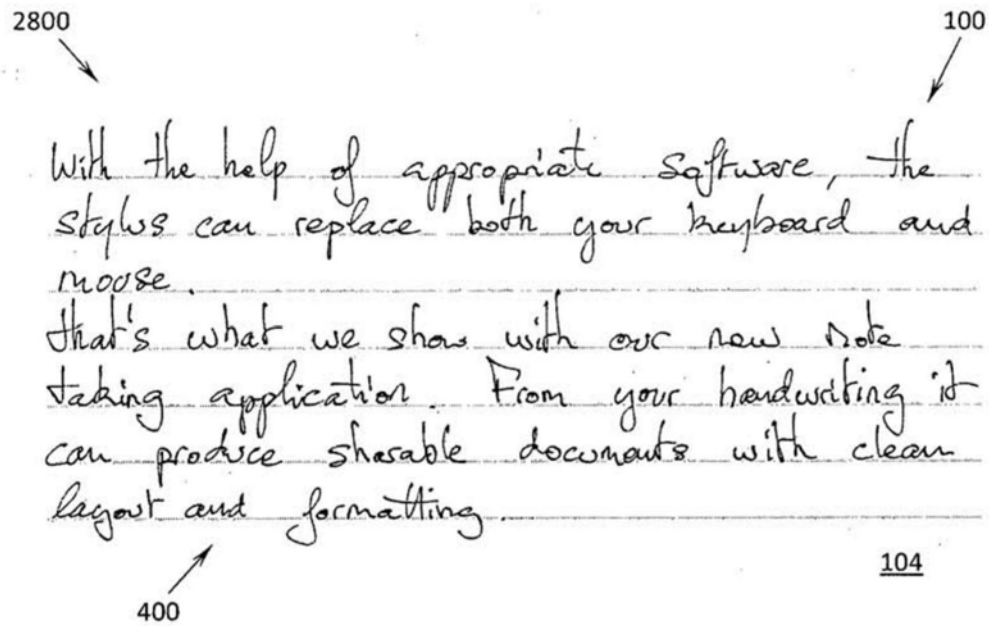 2800
100
With the help of appropriate software, the
stylus can replace both your keyboard and
mouse.
that's what we show with our new note
taking application. From your handwriting it
can produce sharable documents with clean
layout and formatting.
104
400